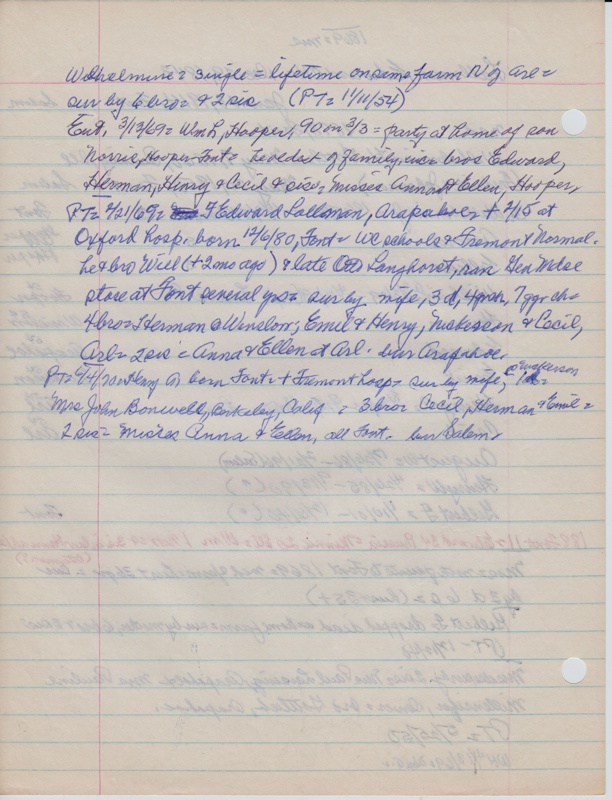 Wilhelmine = single = lifetime on same farm N of Arl =
sur by 6 bro = & 2 sis (PT= 11/11/54)
Ent, 3/13/69= Wm L, Hooper, 90 on 3/3 = party at home of son
Norris, Hooper - Font = he oldest of family, inc= bros Edward,
Herman, Henry & Cecil & sis=, Misses Anna & Ellen, Hooper,
PT= 2/21/69= F Edward Lallman, Arapahoe, + 2/15 at
Oxford Hosp. born 12/6/80, Font = WC schools & Fremont Normal -
he & bro Will (+ 2 mo ago) & late Langhorst, ran Gen Mdse
store at Font several yrs = sur by wife, 3 d, 4 grch, 7 ggr ch =
4 bro = Herman @ Winslow, Emil & Henry, & Cecil,
Arl = 2 sis = Anna & Ellen at Arl - bur Arapahoe.
PT= born Font = + Fremont hosp = sur by wife,
Mrs John Bonwell, Berkeley, Calif = 3 bro = Cecil, Herman & Emil =
2 sis = Misses Anna & Ellen, all Font - bur Salem